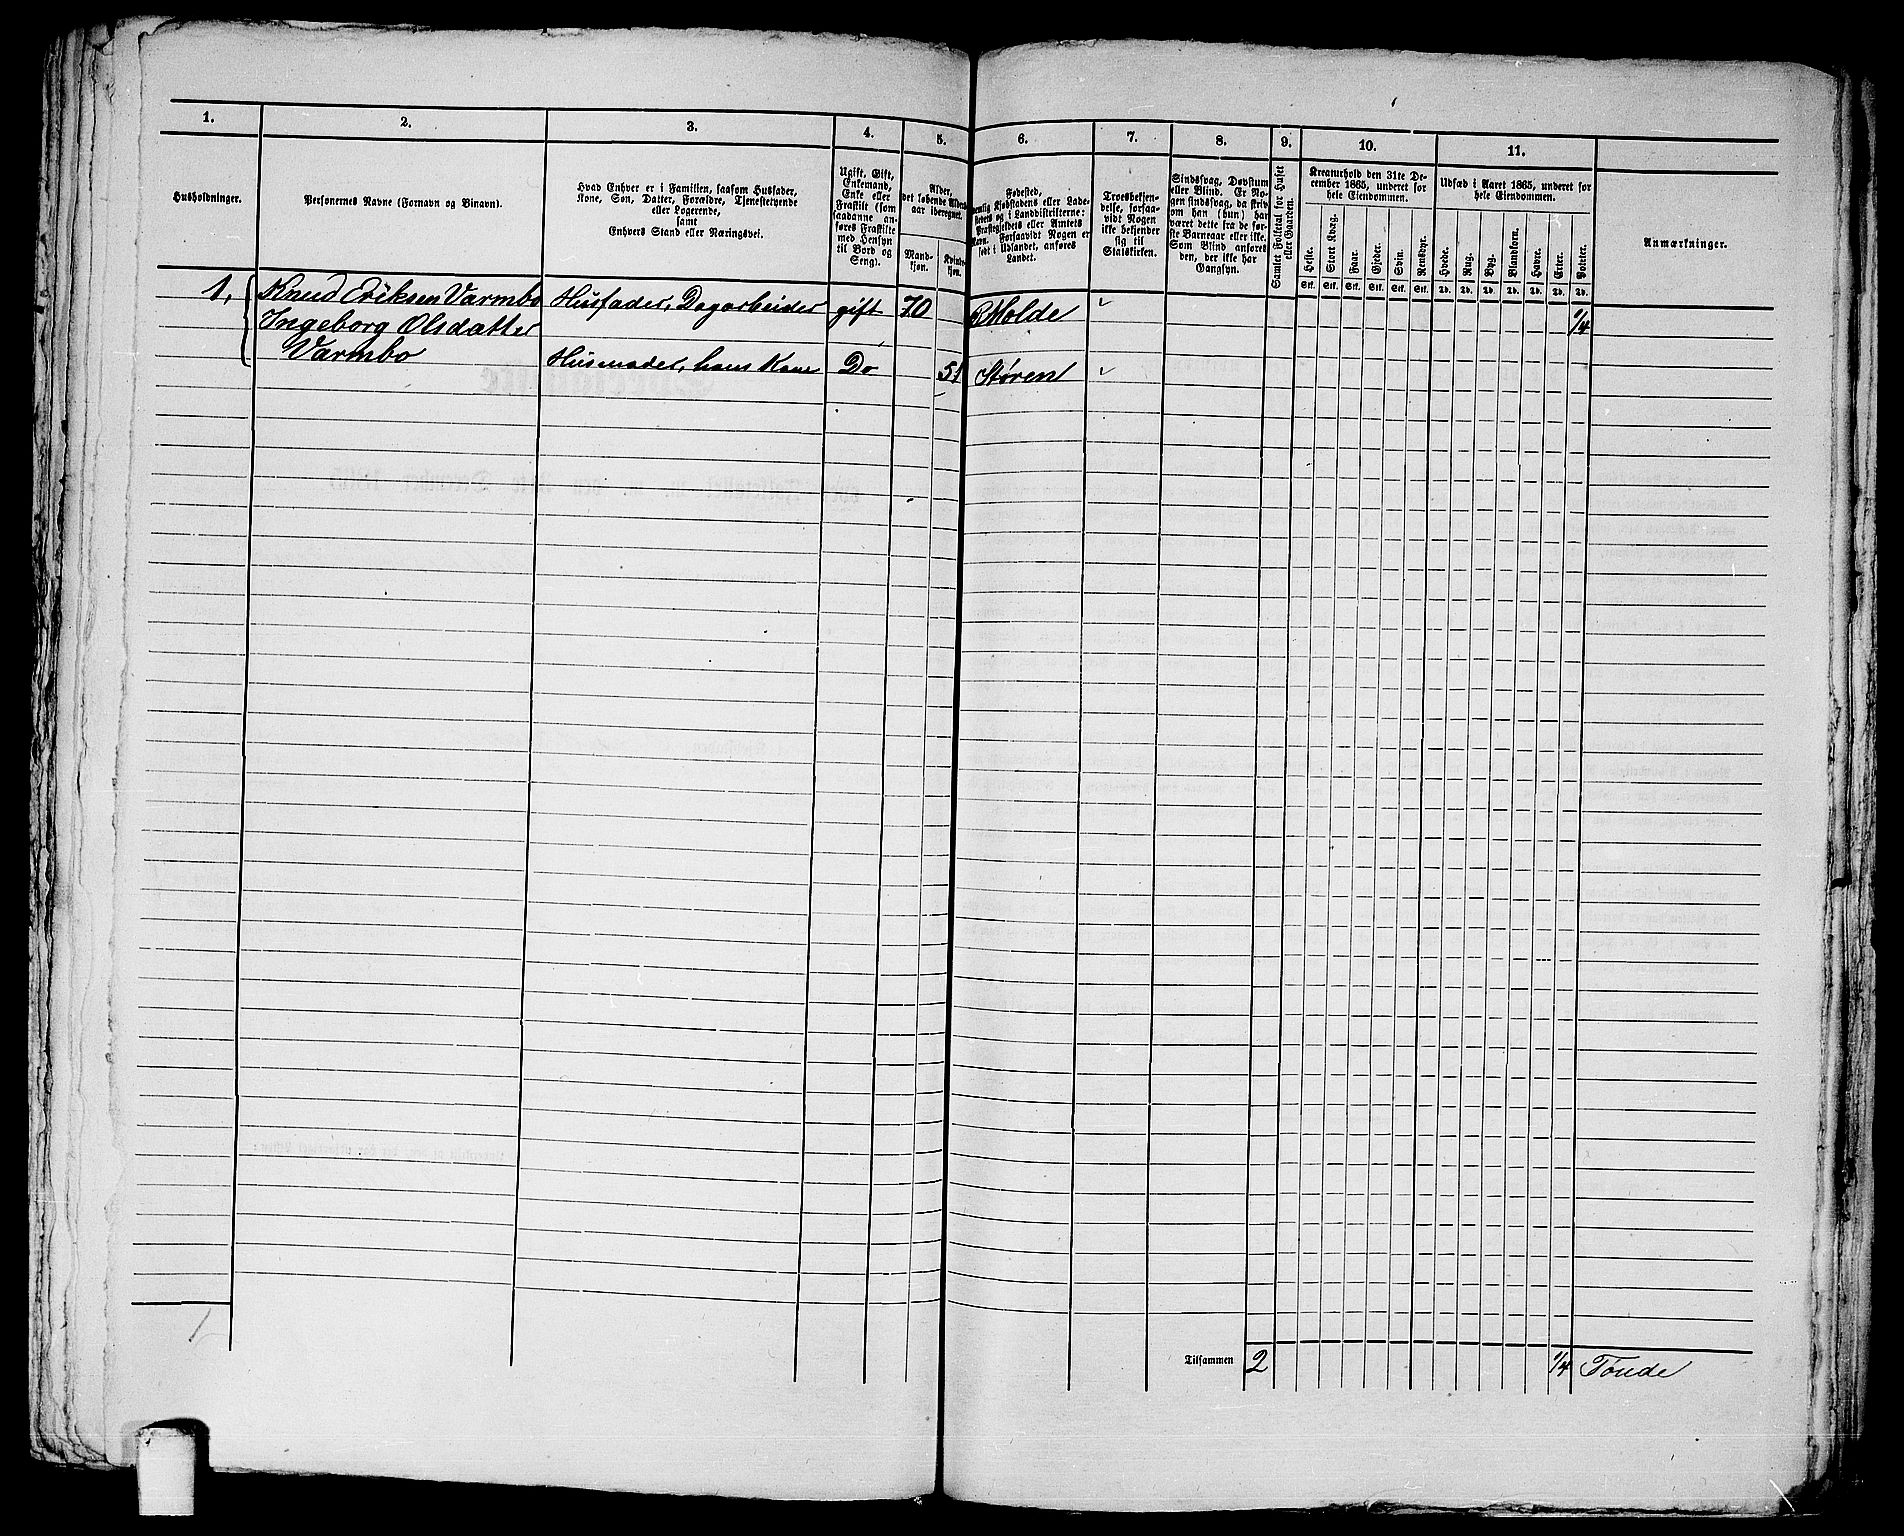 1.
2.
3.
4.
5.
6.
7.
8.
9.
10.
11.
Husholdninger.
Personernes Navne (Fornavn og Binavn).
Hvad Enhver er i Familien, saasom Husfader,
Kone, Søn, Datter, Forældre, Tjenestetyende
eller Logerende,
samt
Enhvers Stand eller Næringsvei.
Ugift, Gift,
Enkemand,
Enke eller
Fraskilt (som
saadanne an-
føres Fraskilte
med Hensyn
til Bord og
Seng).
Alder,
det løbende Alders-
aar iberegnet.
Mand-
kjøn.
Kvinde-
kjøn.
Fødested,
nemlig Kjøbstadens eller Lade-
stedets og i Landdistrikterne:
Præstegjeldets eller Amtets
Navn. Forsaavidt Nogen er
født i Udlandet, anføres
Landet.
Troesbekjen-
delse, forsaa-
vidt Nogen
ikke bekjender
sig til
Statskirken.
Sindssvag, Døvstum
eller Blind. Er No-
gen sindssvag, da skriv
om han (hun) har
været dette fra de før-
ste Barneaar eller ikke.
Som Blind anføres
den, der ikke har
Gangsyn.
Samlet Folketal for Huset
eller Gaarden.
Kreaturhold den 31te De-
cember 1865, underet for
hele Eiendommen.
Heste.
Stort Kvæg.
Faar.
Gjeder.
Svin.
Rensdyr.
Stk. Stk. Stk. Stk. Stk. Stk.
Udsæd i Aaret 1865, underet for
hele Eiendommen.
Hvede.
Rug.
Byg.
Blandkorn.
Havre.
Erter.
Poteter.
Td. Td. Td. Td. Td. Td. Td.
Anmærkninger.
1. Knud Eriksen Varmbo Husfader, Dagarbeider gift 70 Molde 1/4
Ingeborg Olsdatter
Varmbo Husmoder, hans Kone Do 51 Støren
1
Tilsammen 2 1/4 Tønde